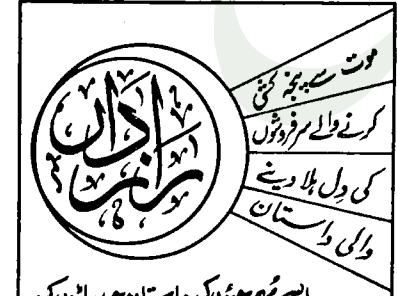 رازدار
موت سے پنجہ کشی
کرنے والے سرفروشوں
کی دل ہلا دینے
والی داستان